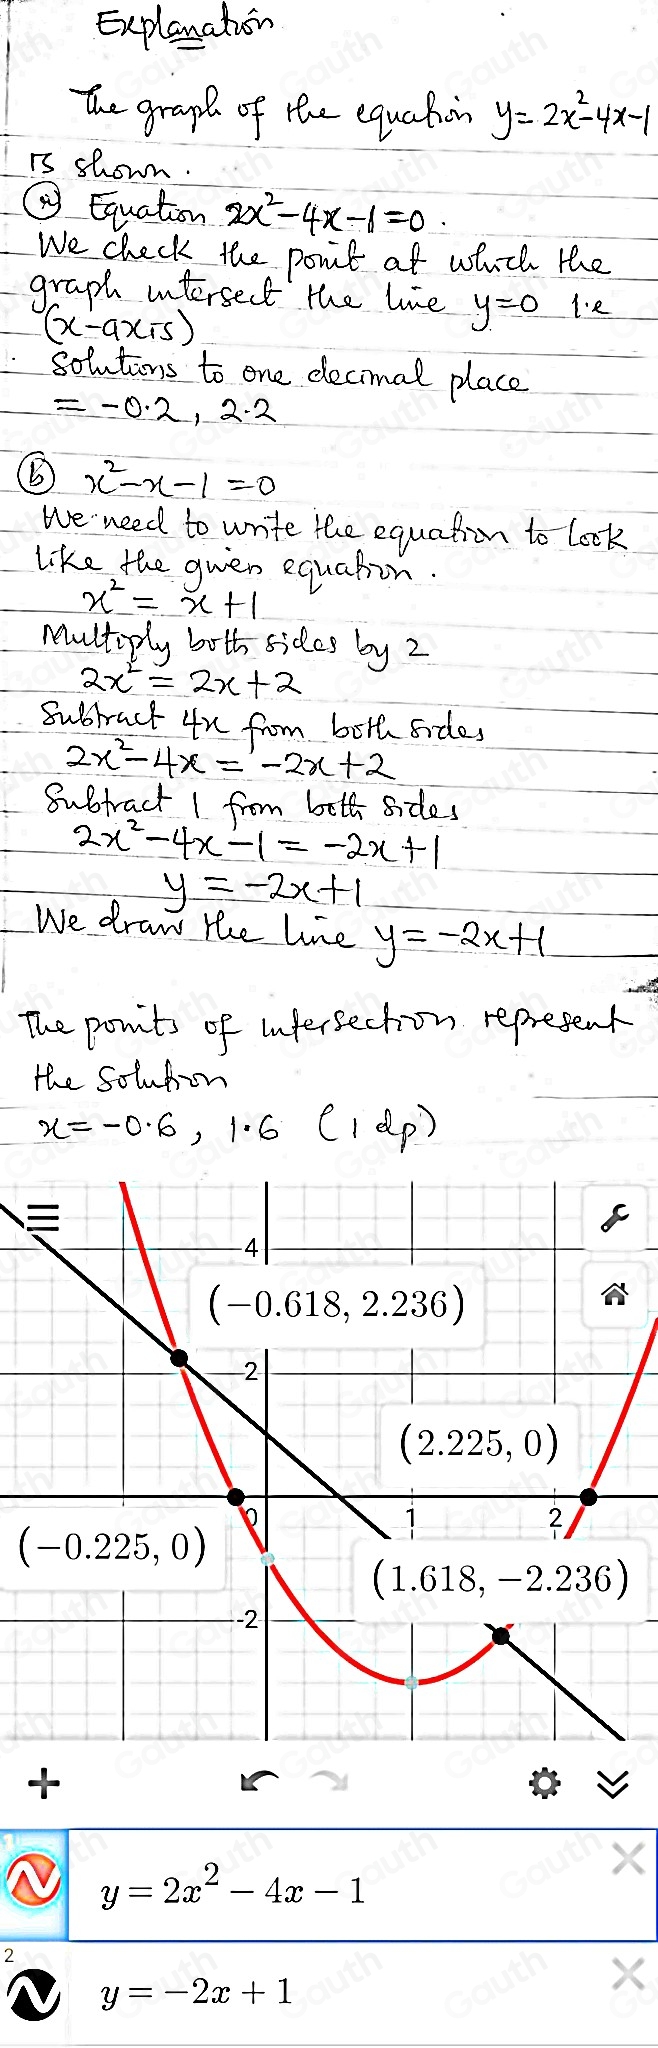 Explanation
The graph of the equation y = 2x²-4x-1
is shown.
(a) Equation 2x²-4x-1=0.
We check the point at which the
graph intersect the line y=0 i.e
(x-axis)
Solutions to one decimal place
= -0.2, 2.2
(b) x²-x-1=0
We need to write the equation to look
like the given equation.
x² = x+1
Multiply both sides by 2
2x² = 2x+2
Subtract 4x from both sides
2x²-4x = -2x+2
Subtract 1 from both sides
2x²-4x-1 = -2x+1
y = -2x+1
We draw the line y = -2x+1
The points of intersection represent
the solution
x = -0.6, 1.6 (1 dp)
4
(-0.618, 2.236)
2
(2.225, 0)
0 1 2
(-0.225, 0)
(1.618, -2.236)
-2
1
y = 2x² - 4x - 1
2
y = -2x + 1
Gauth